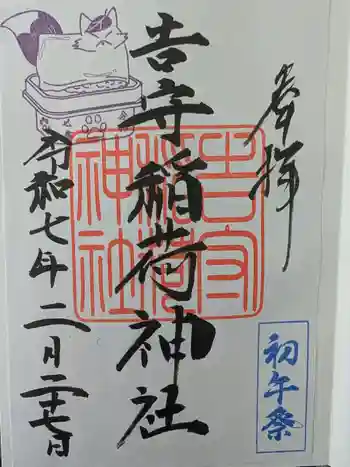 奉拝
吉守稲荷神社
吉守稲荷神社
令和七年二月二十七日
初午祭